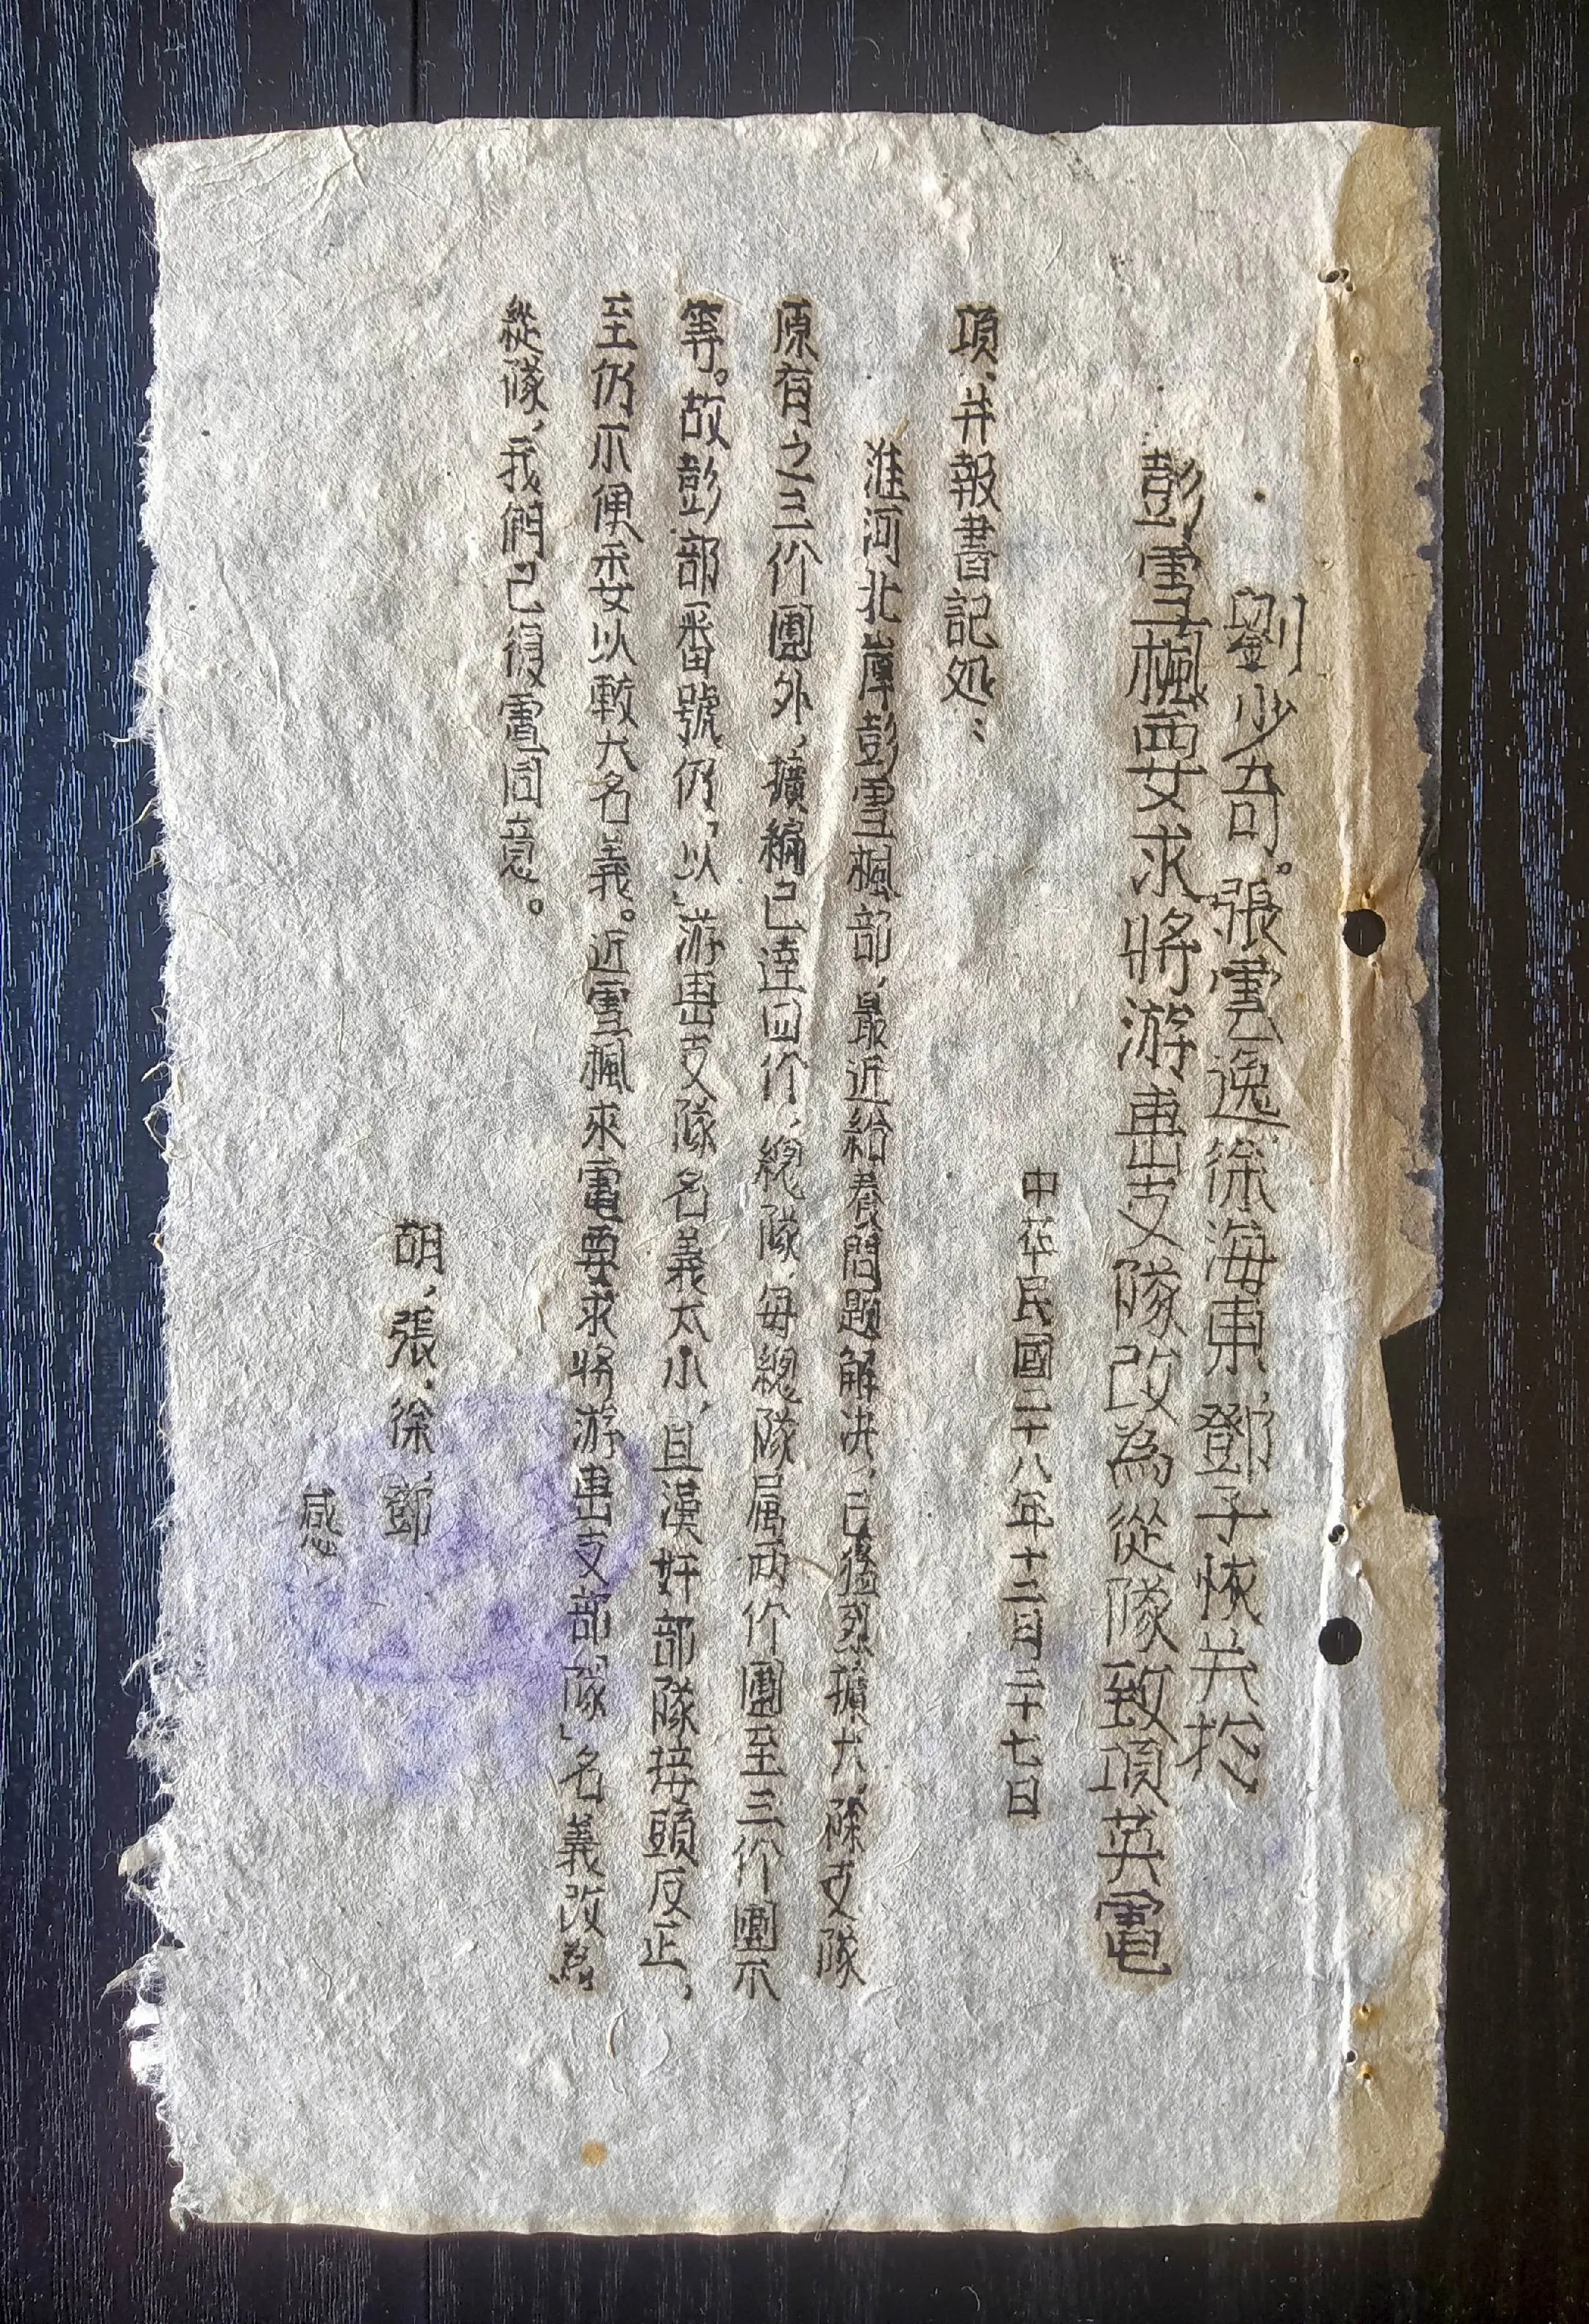 劉少奇。張雲逸、徐海東、鄧子恢关於
彭雪楓要求將游击支隊改為從隊致項英電
中华民國二十八年十二月二十七日
項、并報書記処：
淮河北岸彭雪楓部，最近給养問題解决，已猛烈擴大，除支隊
原有之三个團外，擴編已達四个，總隊，每總隊属两个團至三个團不
等。故彭部番號仍「以」游击支隊名義太小，且漢奸部隊接頭反正，
至仍不便采女以較大名義。近雪楓來電要求將游击支部「隊」名義改為
從隊，我們已復電同意。
胡，張，徐，鄧
感